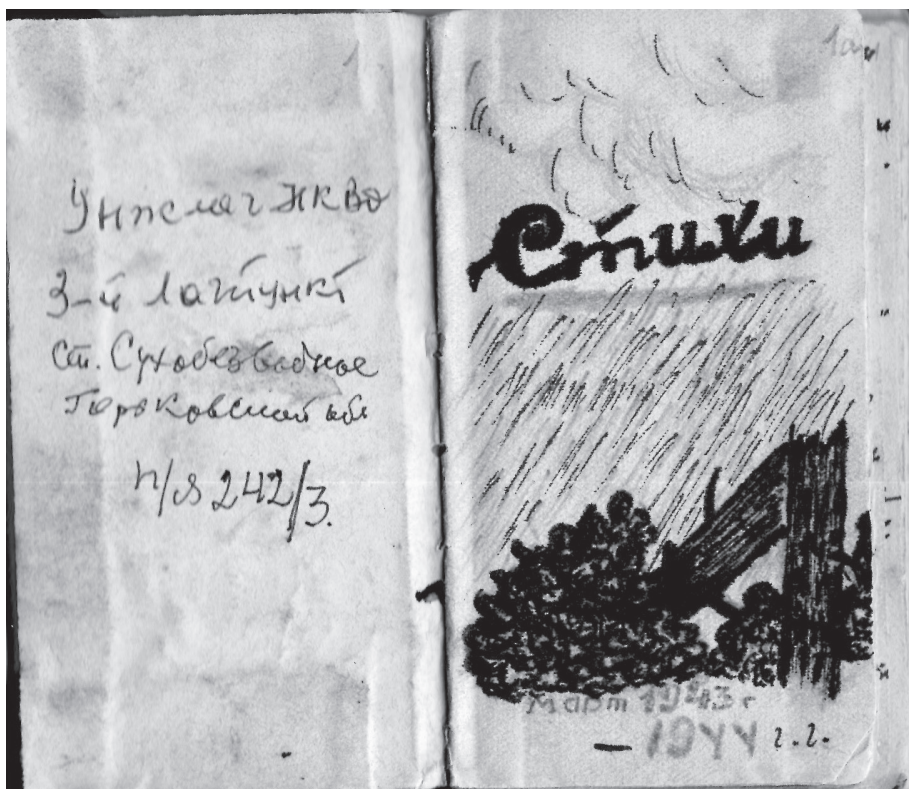 Унжлаг НКВД
3-й Лагпункт
ст. Сухобезводное
Горьковской обл
п/я 242/3.
Стихи
Март 1943 г
— 1944 г.г.